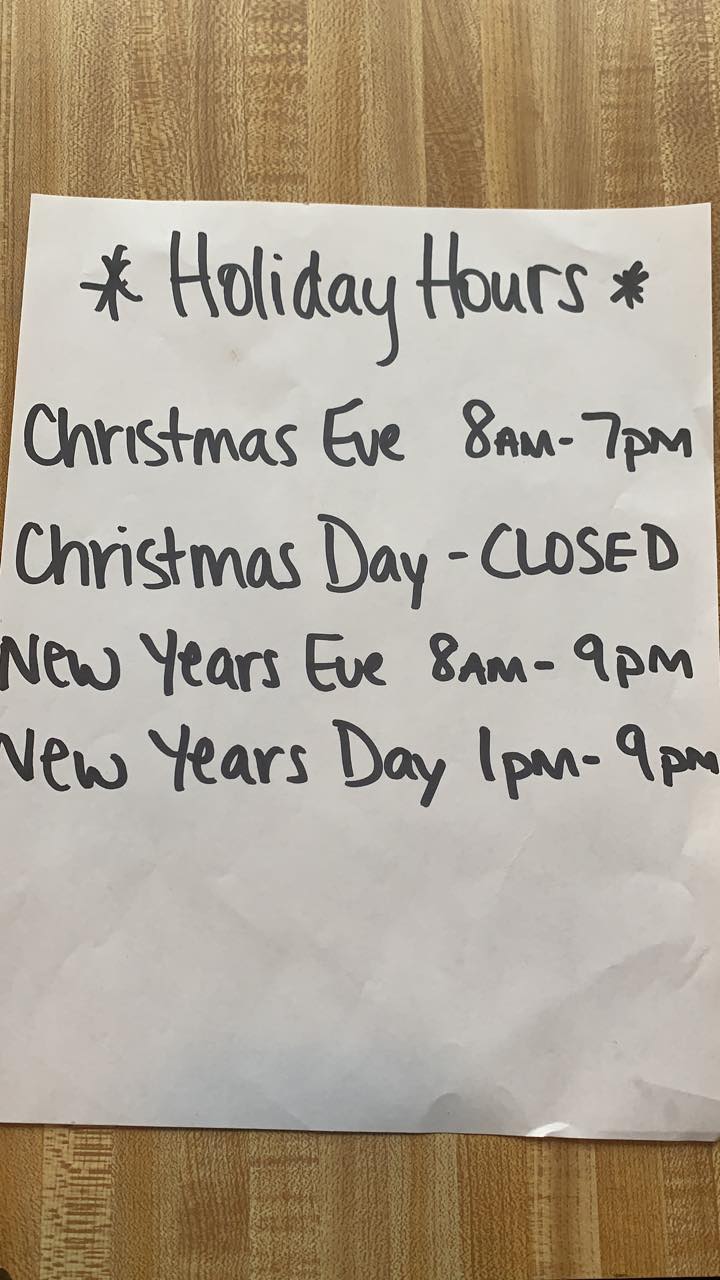 * Holiday Hours *
Christmas Eve 8AM - 7PM
Christmas Day - CLOSED
New Years Eve 8AM - 9PM
New Years Day 1PM - 9PM